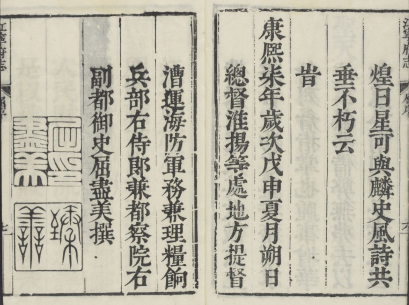 煌日星可與麟史風詩共
垂不朽云
康熙柒年歲次戊申夏月朔日
旹
總督淮揚等處地方提督
漕運海防軍務兼理糧餉
兵部右侍郎兼都察院右
副都御史屈盡美撰